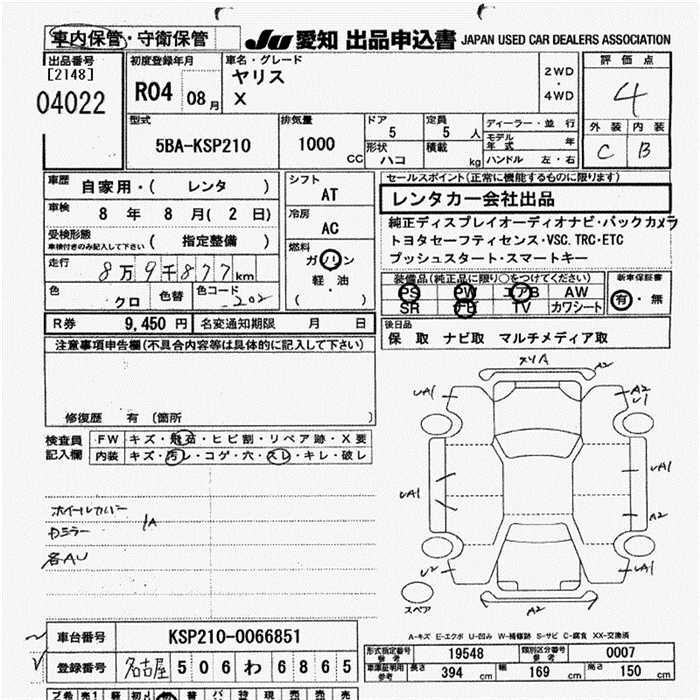 車内保管・守衛保管 JU 愛知 出品申込書 JAPAN USED CAR DEALERS ASSOCIATION
出品番号
[2148]
04022
初度登録年月
R04 08月
車名・グレード
ヤリス
X
2WD
・
4WD
評価点
4
外装 内装
C B
型式
5BA-KSP210
排気量
1000 CC
ドア
5
定員
5 人
形状
ハコ
積載
kg
ディーラー・並行
モデル年式 年
ハンドル 左・右
車歴
自家用・( レンタ )
車検
8 年 8 月 ( 2 日)
受検形態
車検付きのみ記入して下さい
( 指定整備 )
走行
8万9千877km
色
クロ
色替
色コード
202
シフト
AT
冷房
AC
燃料
ガソリン
軽・油
( )
セールスポイント(正常に機能するものに限ります)
レンタカー会社出品
純正ディスプレイオーディオナビ・バックカメラ
トヨタセーフティセンス・VSC.TRC・ETC
プッシュスタート・スマートキー
装備品(純正品に限り○をつけてください)
PS PW エアB AW
SR TV カワシート
新車保証書
有・無
R券 9,450 円 名変通知期限 月 日
後日品
保 取 ナビ取 マルチメディア取
注意事項申告欄(不具合内容等は具体的に記入して下さい)
修復歴 有 (箇所 )
検査員
記入欄
FW キズ・飛石・ヒビ割・リペア跡・X要
内装 キズ・汚レ・コゲ・穴・スレ・キレ・破レ
ホイールカバー
カミラー 1A
各AU
A2
UA1
A2
U1
UA1
UA1
A2
U2
UA1
A2
スペア
A-キズ E-エクボ U-凹み W-補修跡 S-サビ C-腐食 XX-交換済
車台番号 KSP210-0066851
登録番号 名古屋 506わ6865
形式指定番号
参考
19548
類別区分番号
参考
0007
車庫証明用
参考
長さ 394 cm 幅 169 cm 高さ 150 cm